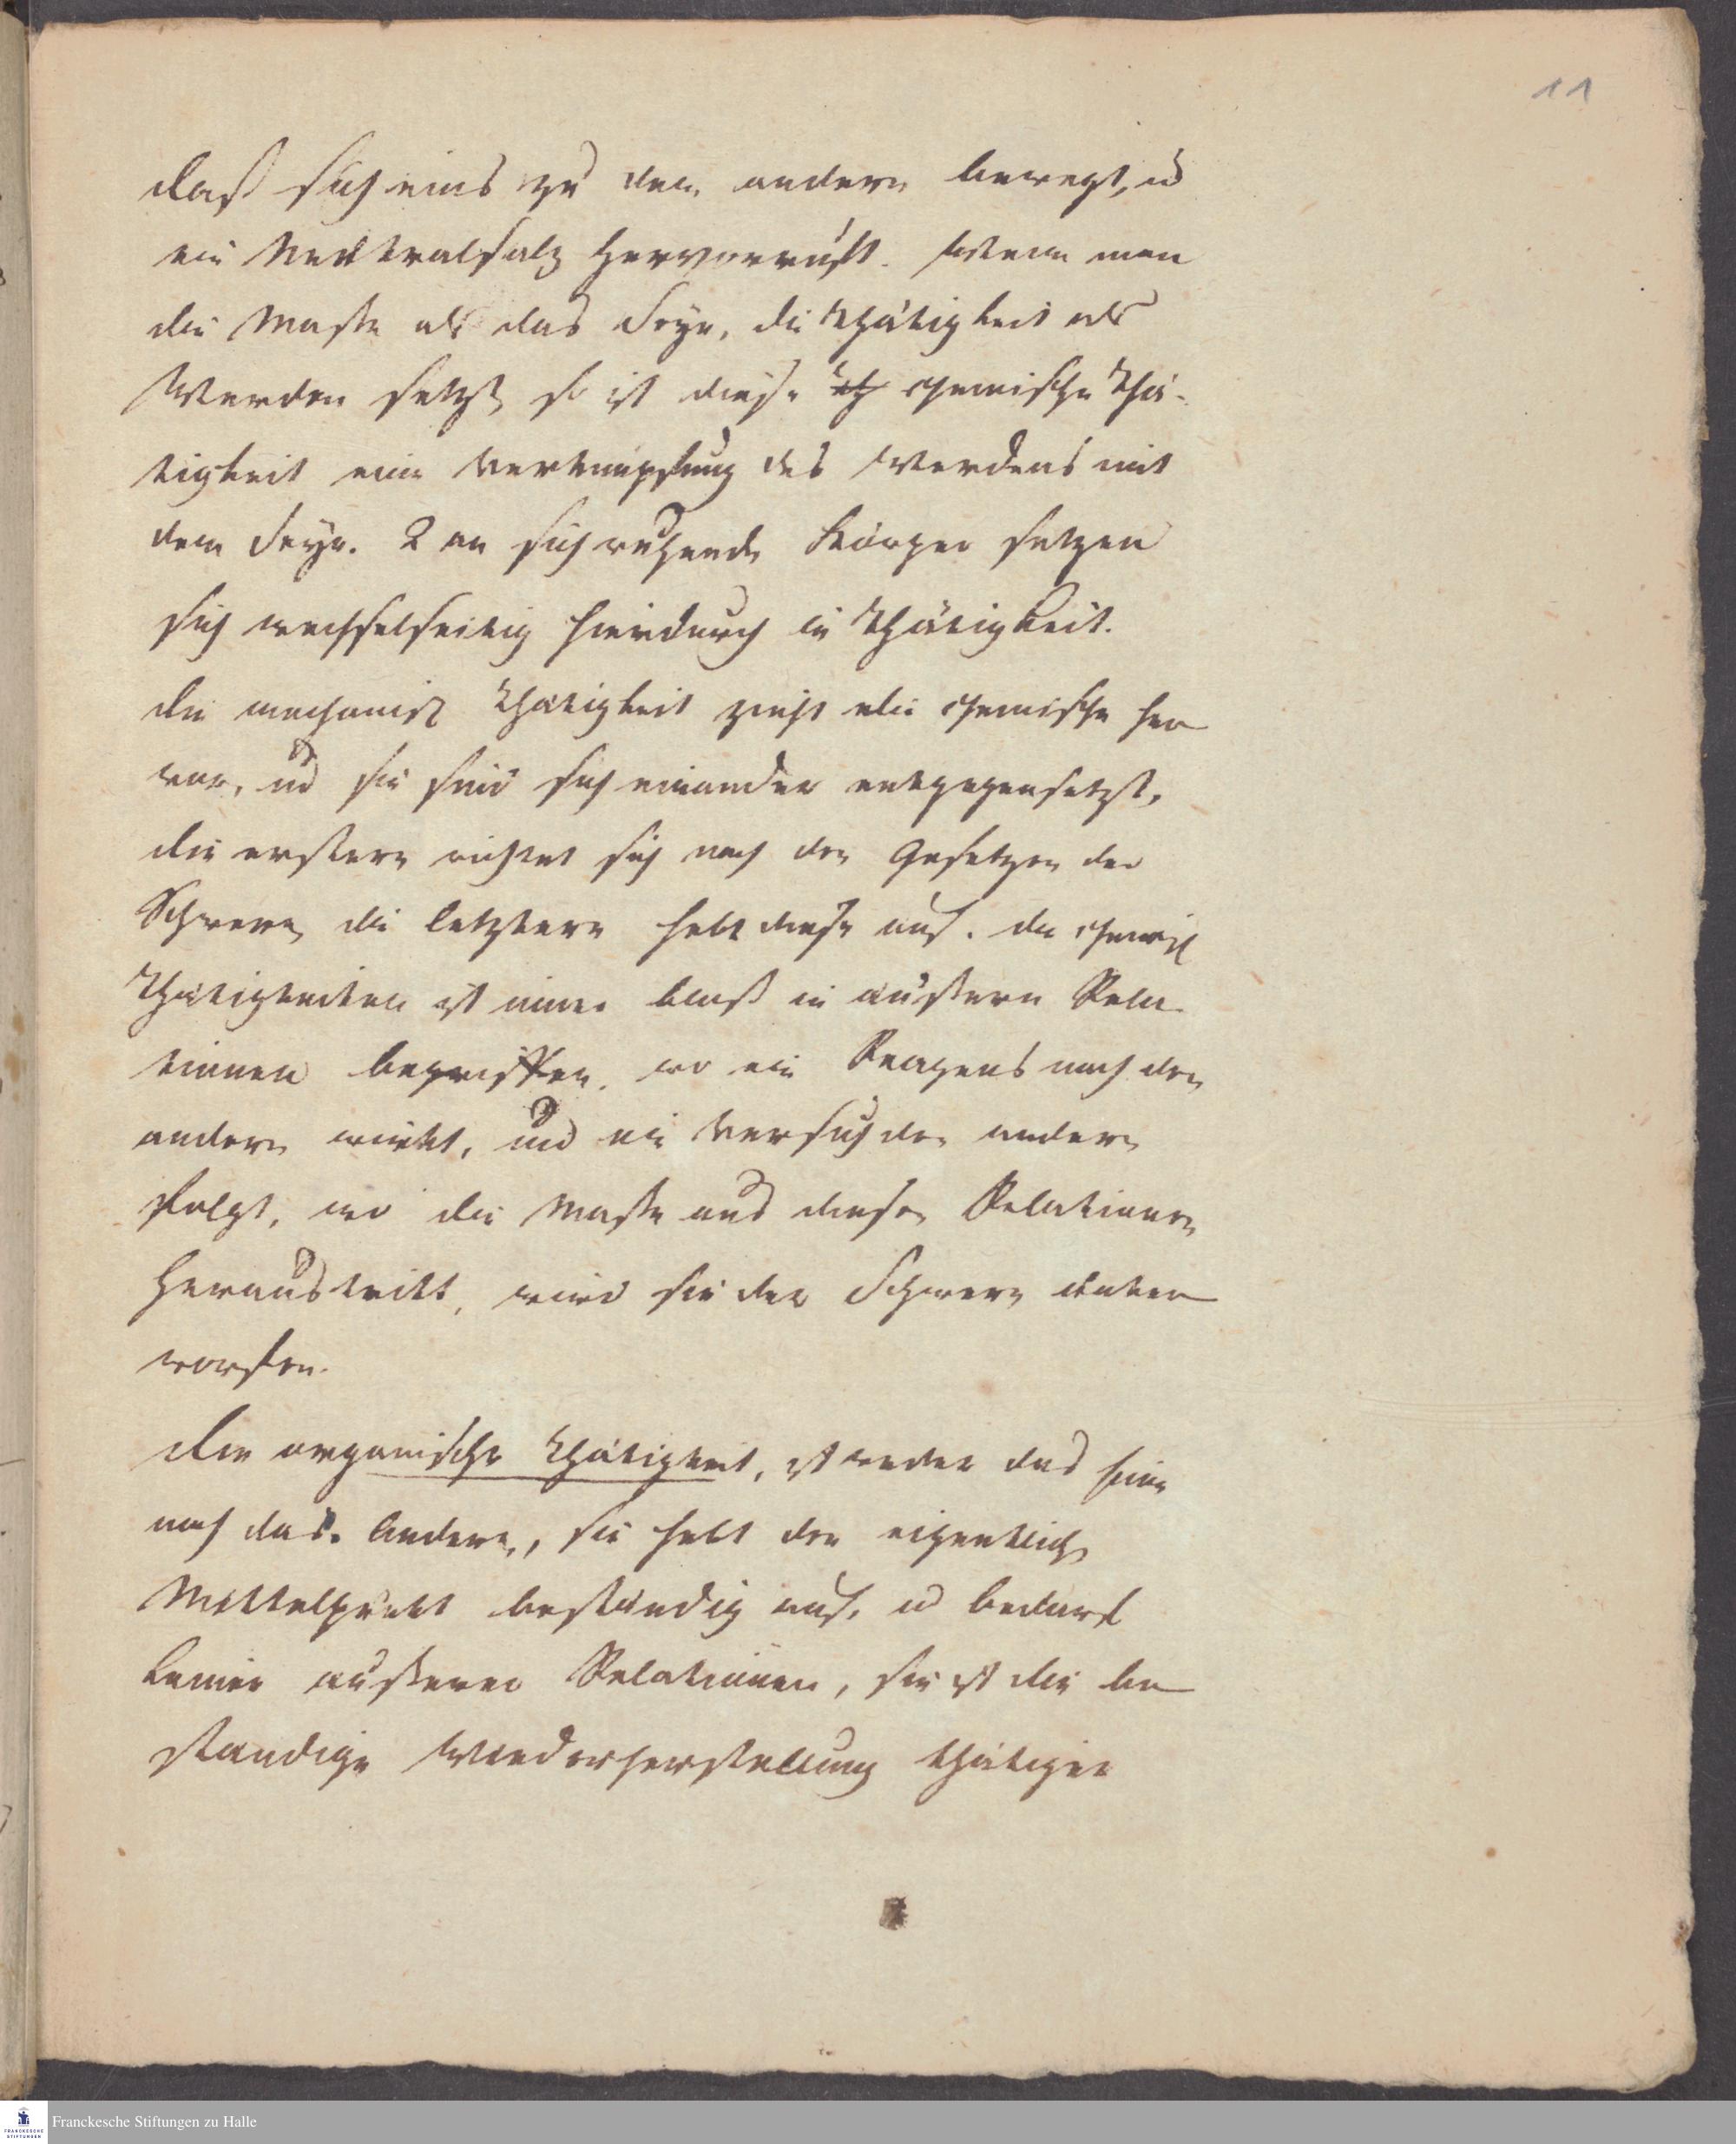 11
daß sich eins zu dem andern bewegt, u
ein Neutralsalz hervorruft. Wenn man
die Masse als das Seyn, die Thätigkeit als
Werden setzt, so ist diese chemische Thä-
tigkeit eine Verknüpfung des Werdens mit
dem Seyn. 2 an sich ruhende Körper setzen
sich wechselseitig hierdurch in Thätigkeit.
die mechanisch Thätigkeit zieht die chemische her
vor, und sie sind sich einander entgegensetzt,
die erstere richtet sich nach den Gesetzen der
Schwere, die letztere hebt diese auf. die chemisch
Thätigkeiten ist immer bloß in äußern Rela
tionen begriffen, wo ein Reagens nach dem
andern wirkt, und ein Versuch den andern
folgt, wo die Masse aus diesen Relationen
heraustritt, wird sie der Schwere unter
worfen.
Die organische Thätigkeit, ist weder das eine
noch das Andere, sie hebt den eigentlich
Mittelpunkt beständig auf, u bedarf
keiner äußeren Relationen, sie ist die be
ständige Wiederherstellung thätiger
Franckesche Stiftungen zu Halle
FRANCKESCHE
STIFTUNGEN